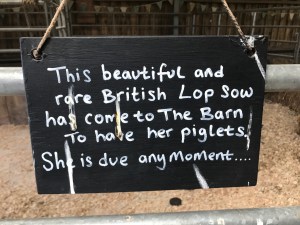 This beautiful and
rare British Lop Sow
has come to The Barn
To have her piglets.
She is due any Moment....